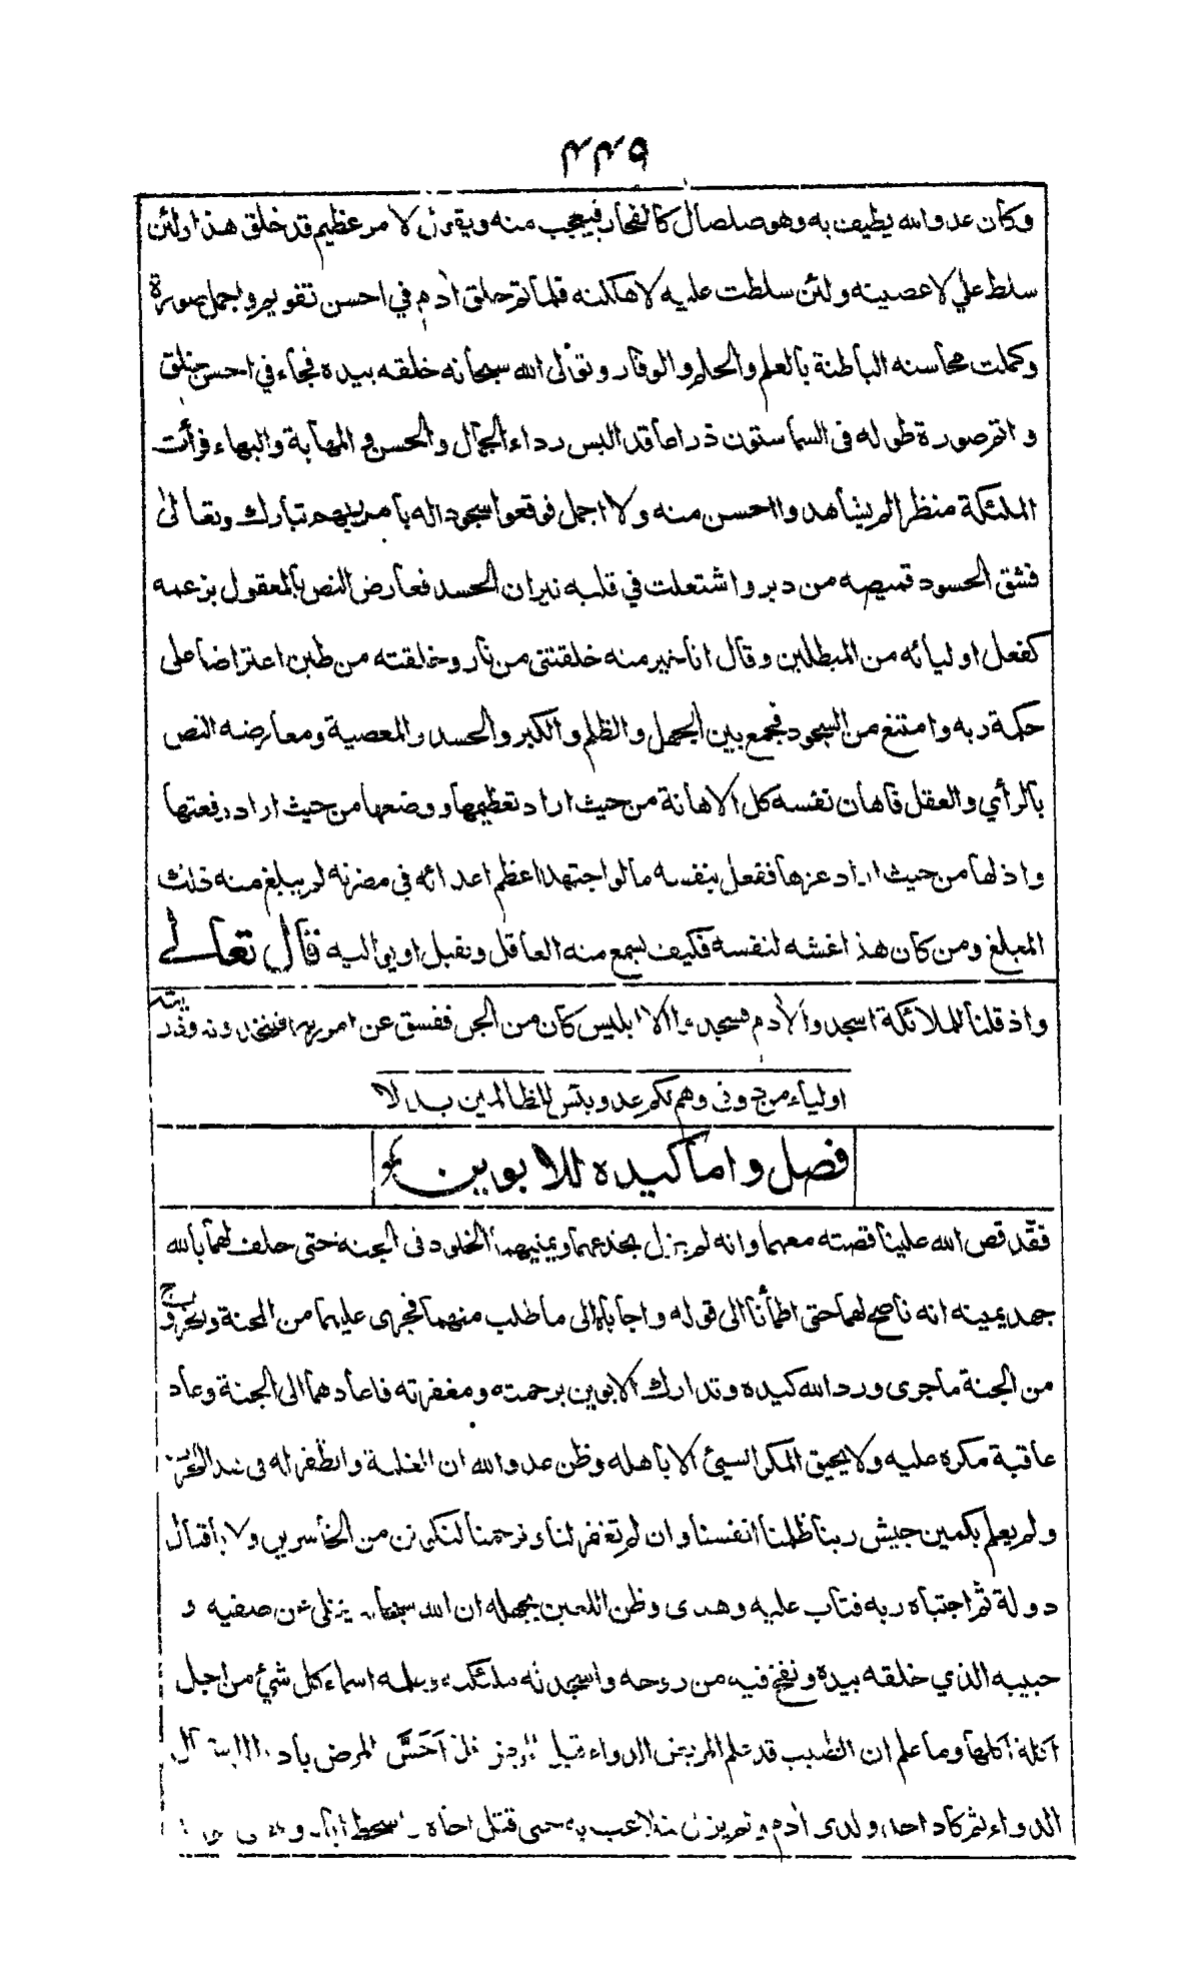 ٤٤٥
وكان عدو الله يطيف به وهو صلصال كالفخار فيعجب منه ويقول لامر عظيم قد خلق هذا ولئن
سلط علي لاعصينه ولئن سلطت عليه لاهلكنه فلما تم خلق اٰدم في احسن تقويم واجمل صورة
وكملت محاسنه الباطنة بالعلم والحلم والوقار وتولى الله سبحانه خلقه بيده فجاء في احسن خلق
واتم صورة طوله فى السما ستون ذراعا قد البس رداء الجمال والحسن و المهابة والبهاء فرأت
الملئكة منظرا لم يشاهدوا احسن منه ولا اجمل فوقعوا سجودا له بامر ربهم تبارك وتعالى
فشق الحسود قميصه من دبر واشتعلت في قلبه نيران الحسد فعارض النص بالمعقول بزعمه
كفعل اوليائه من المبطلين وقال انا خير منه خلقتنى من نار وخلقته من طين اعتراضا على
حكمة ربه وامتنع من السجود فجمع بين الجهل والظلم والكبر والحسد والمعصية ومعارضه النص
بالرأي والعقل فاهان نفسه كل الاهانة من حيث اراد تعظيمها ووضعها من حيث اراد رفعتها
واذلها من حيث اراد عزها ففعل بنفسه ما لو اجتهد اعظم اعدائه في مضرته لم يبلغ منه ذلك
المبلغ ومن كان هذا غشه لنفسه فكيف يسمع منه العاقل ويقبل او يواليه قال تعالے
واذ قلنا للملائكة اسجدوا لاٰدم فسجدوا الا ابليس كان من الجن ففسق عن امر ربه افتتخذونه وذريته
اولياء من دونى وهم لكم عدو بئس للظالمين بدلا
فصل واما كيده للابوين
فقد قص الله علينا قصته معهما وانه لم يزل يخدعهما ويمنيهما الخلود فى الجنة حتى حلف لهما بالله
جهد يمينه انه ناصح لهما حتى اطمأنا الى قوله واجاباه الى ما طلب منهما فجرى عليهما من المحنة والخروج
من الجنة ما جرى ورد الله كيده وتدارك الابوين برحمته ومغفرته فاعادهما الى الجنة وعاد
عاقبة مكره عليه ولا يحيق المكر السيئ الا باهله وظن عدو الله ان الغلبة والظفر له فى هذا
ولم يعلم بكمين جيش ربنا ظلمنا انفسنا وان لم تغفر لنا وترحمنا لنكونن من الخاسرين ولا باقبال
دولة ثم اجتباه ربه فتاب عليه وهدى وظن اللعين بجهله ان الله سبحانه يتخلى عن صفيه و
حبيبه الذي خلقه بيده ونفخ فيه من روحه واسجد له ملئكته وعلمه اسماء كل شئ من اجل
اكلة اكلها وما علم ان الطبيب قد علم المريض الدواء قبل المرض فلما اَحَسَّ المرض باد الى استعمال
الدواء ثم كاد احد ولدى اٰدم ولم يزل يتلاعب به حتى قتل اخاه واسخط اباه